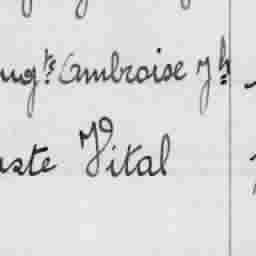 ugte Ambroise Jh
uste Vital